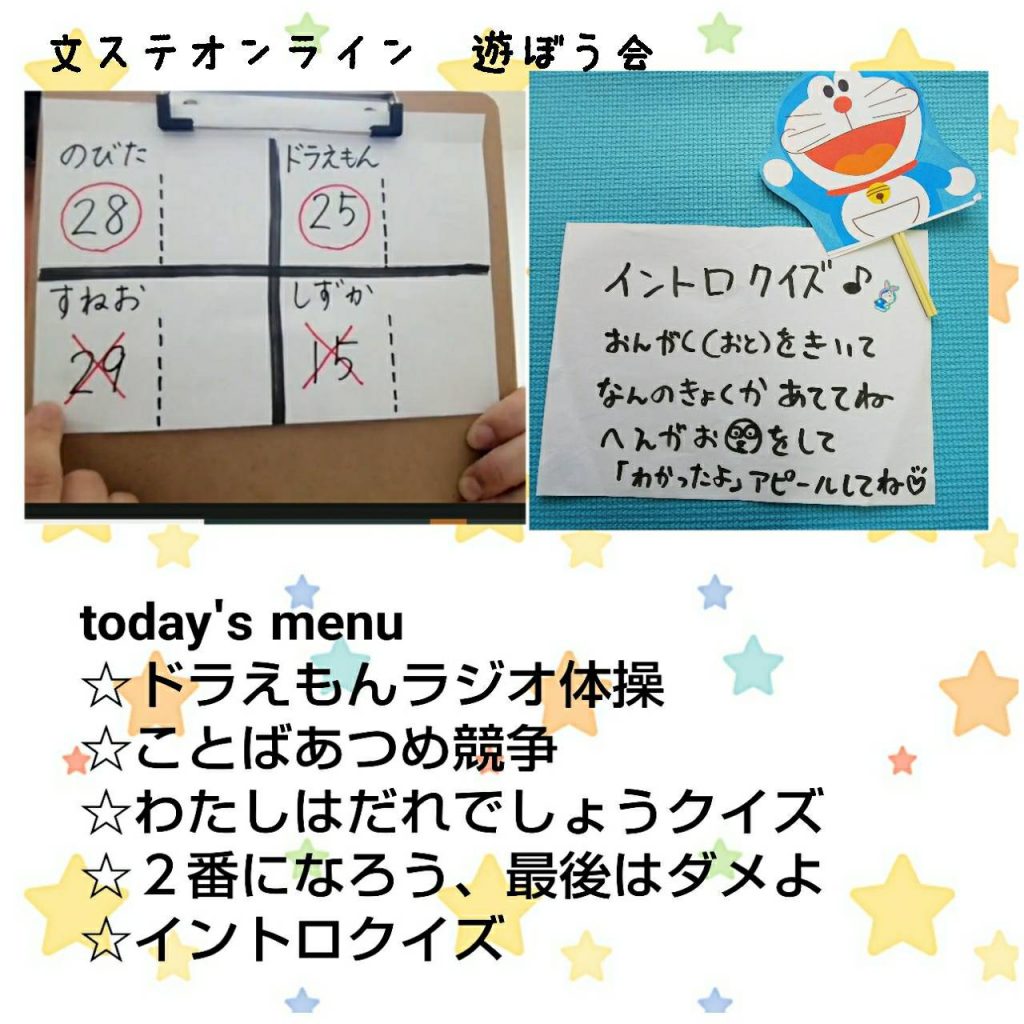 文ステオンライン　遊ぼう会
のびた
28
ドラえもん
25
すねお
29
しずか
15
イントロクイズ♪
おんがく(おと)をきいて
なんのきょくか あててね
へんがおをして
「わかったよ」アピールしてね♡
today's menu
☆ドラえもんラジオ体操
☆ことばあつめ競争
☆わたしはだれでしょうクイズ
☆２番になろう、最後はダメよ
☆イントロクイズ